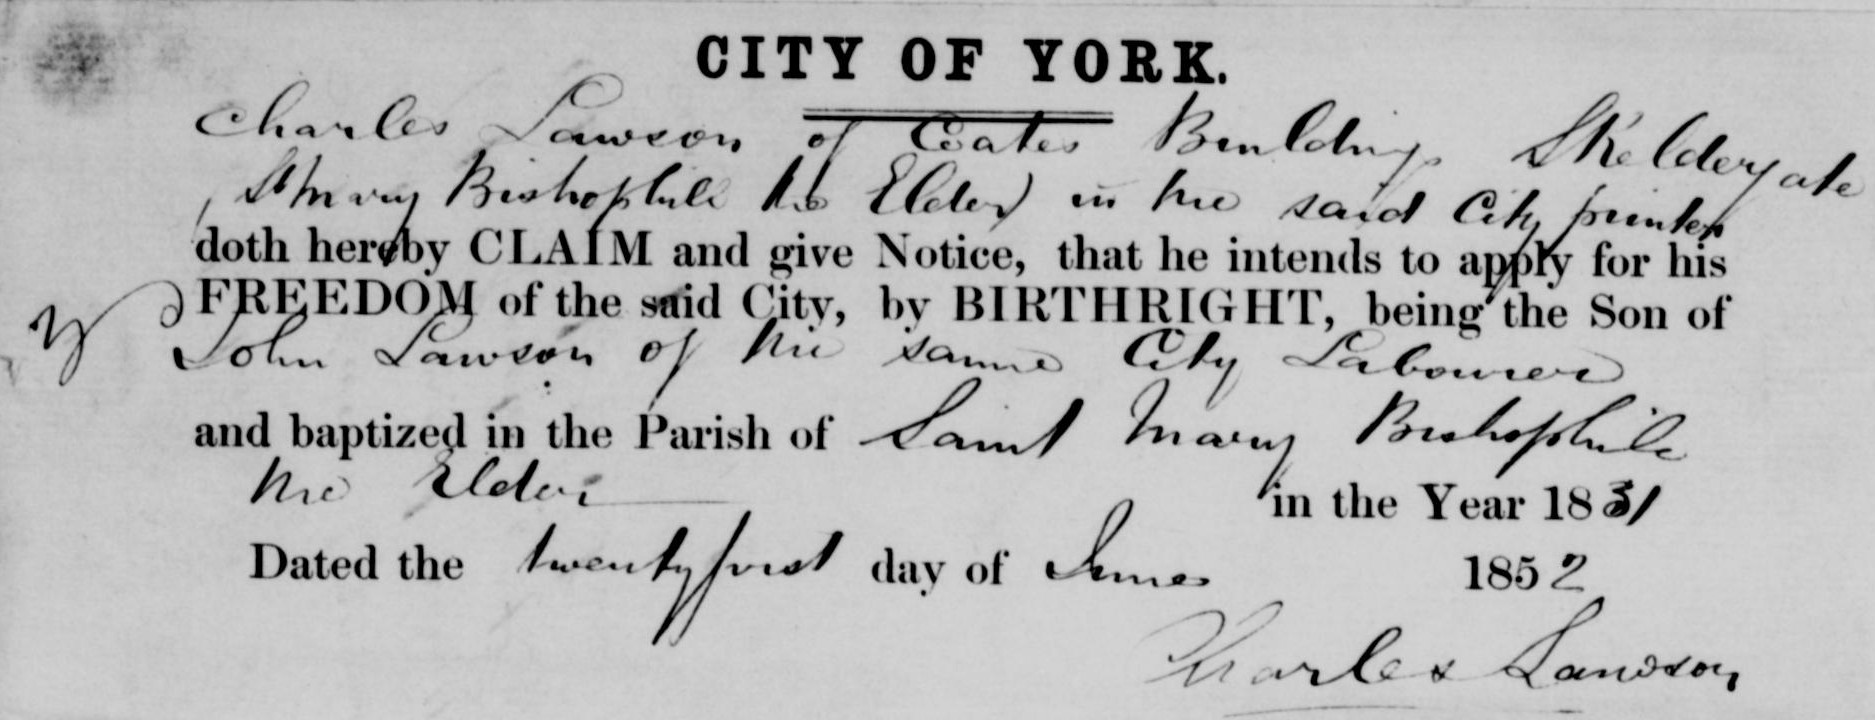 CITY OF YORK.
Charles Lawson of Coates Buildings Skeldergate
St Mary Bishophill the Elder in the said City printer
doth hereby CLAIM and give Notice, that he intends to apply for his
FREEDOM of the said City, by BIRTHRIGHT, being the Son of
John Lawson of the same City Labourer
and baptized in the Parish of Saint Mary Bishophill
the Elder in the Year 1831
Dated the twenty first day of June 1852
Charles Lawson